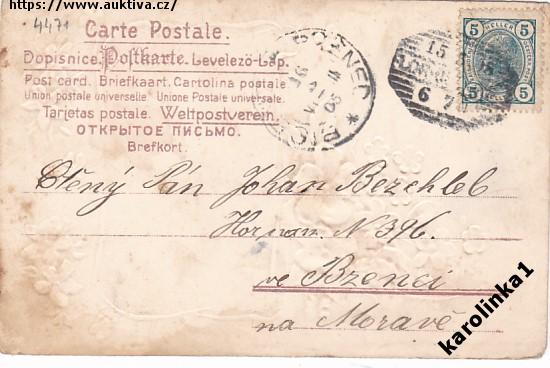 https://www.auktiva.cz/
4471
Carte Postale.
Dopisnice. Postkarte. Levelező-Lap.
Post card. Briefkaart. Cartolina postale
Union postale universelle Unione Postale universale.
Tarjetas postale. Weltpostverein.
ОТКРЫТОЕ ПИСЬМО.
Brefkort.
5 HELLER 5
5 5
15
6 7
BZENEC
Ctěný Pán Johan Bezchleb
N 396.
ve Bzenci
na Moravě
karolinka1